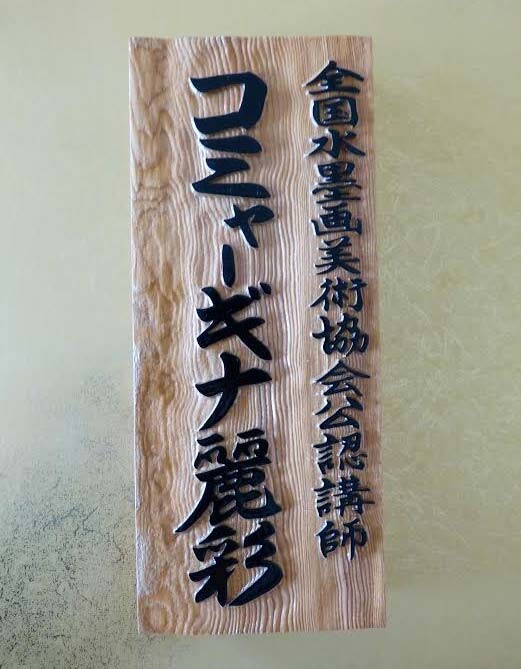 全国水墨画美術協会公認講師
コミャーギナ麗彩